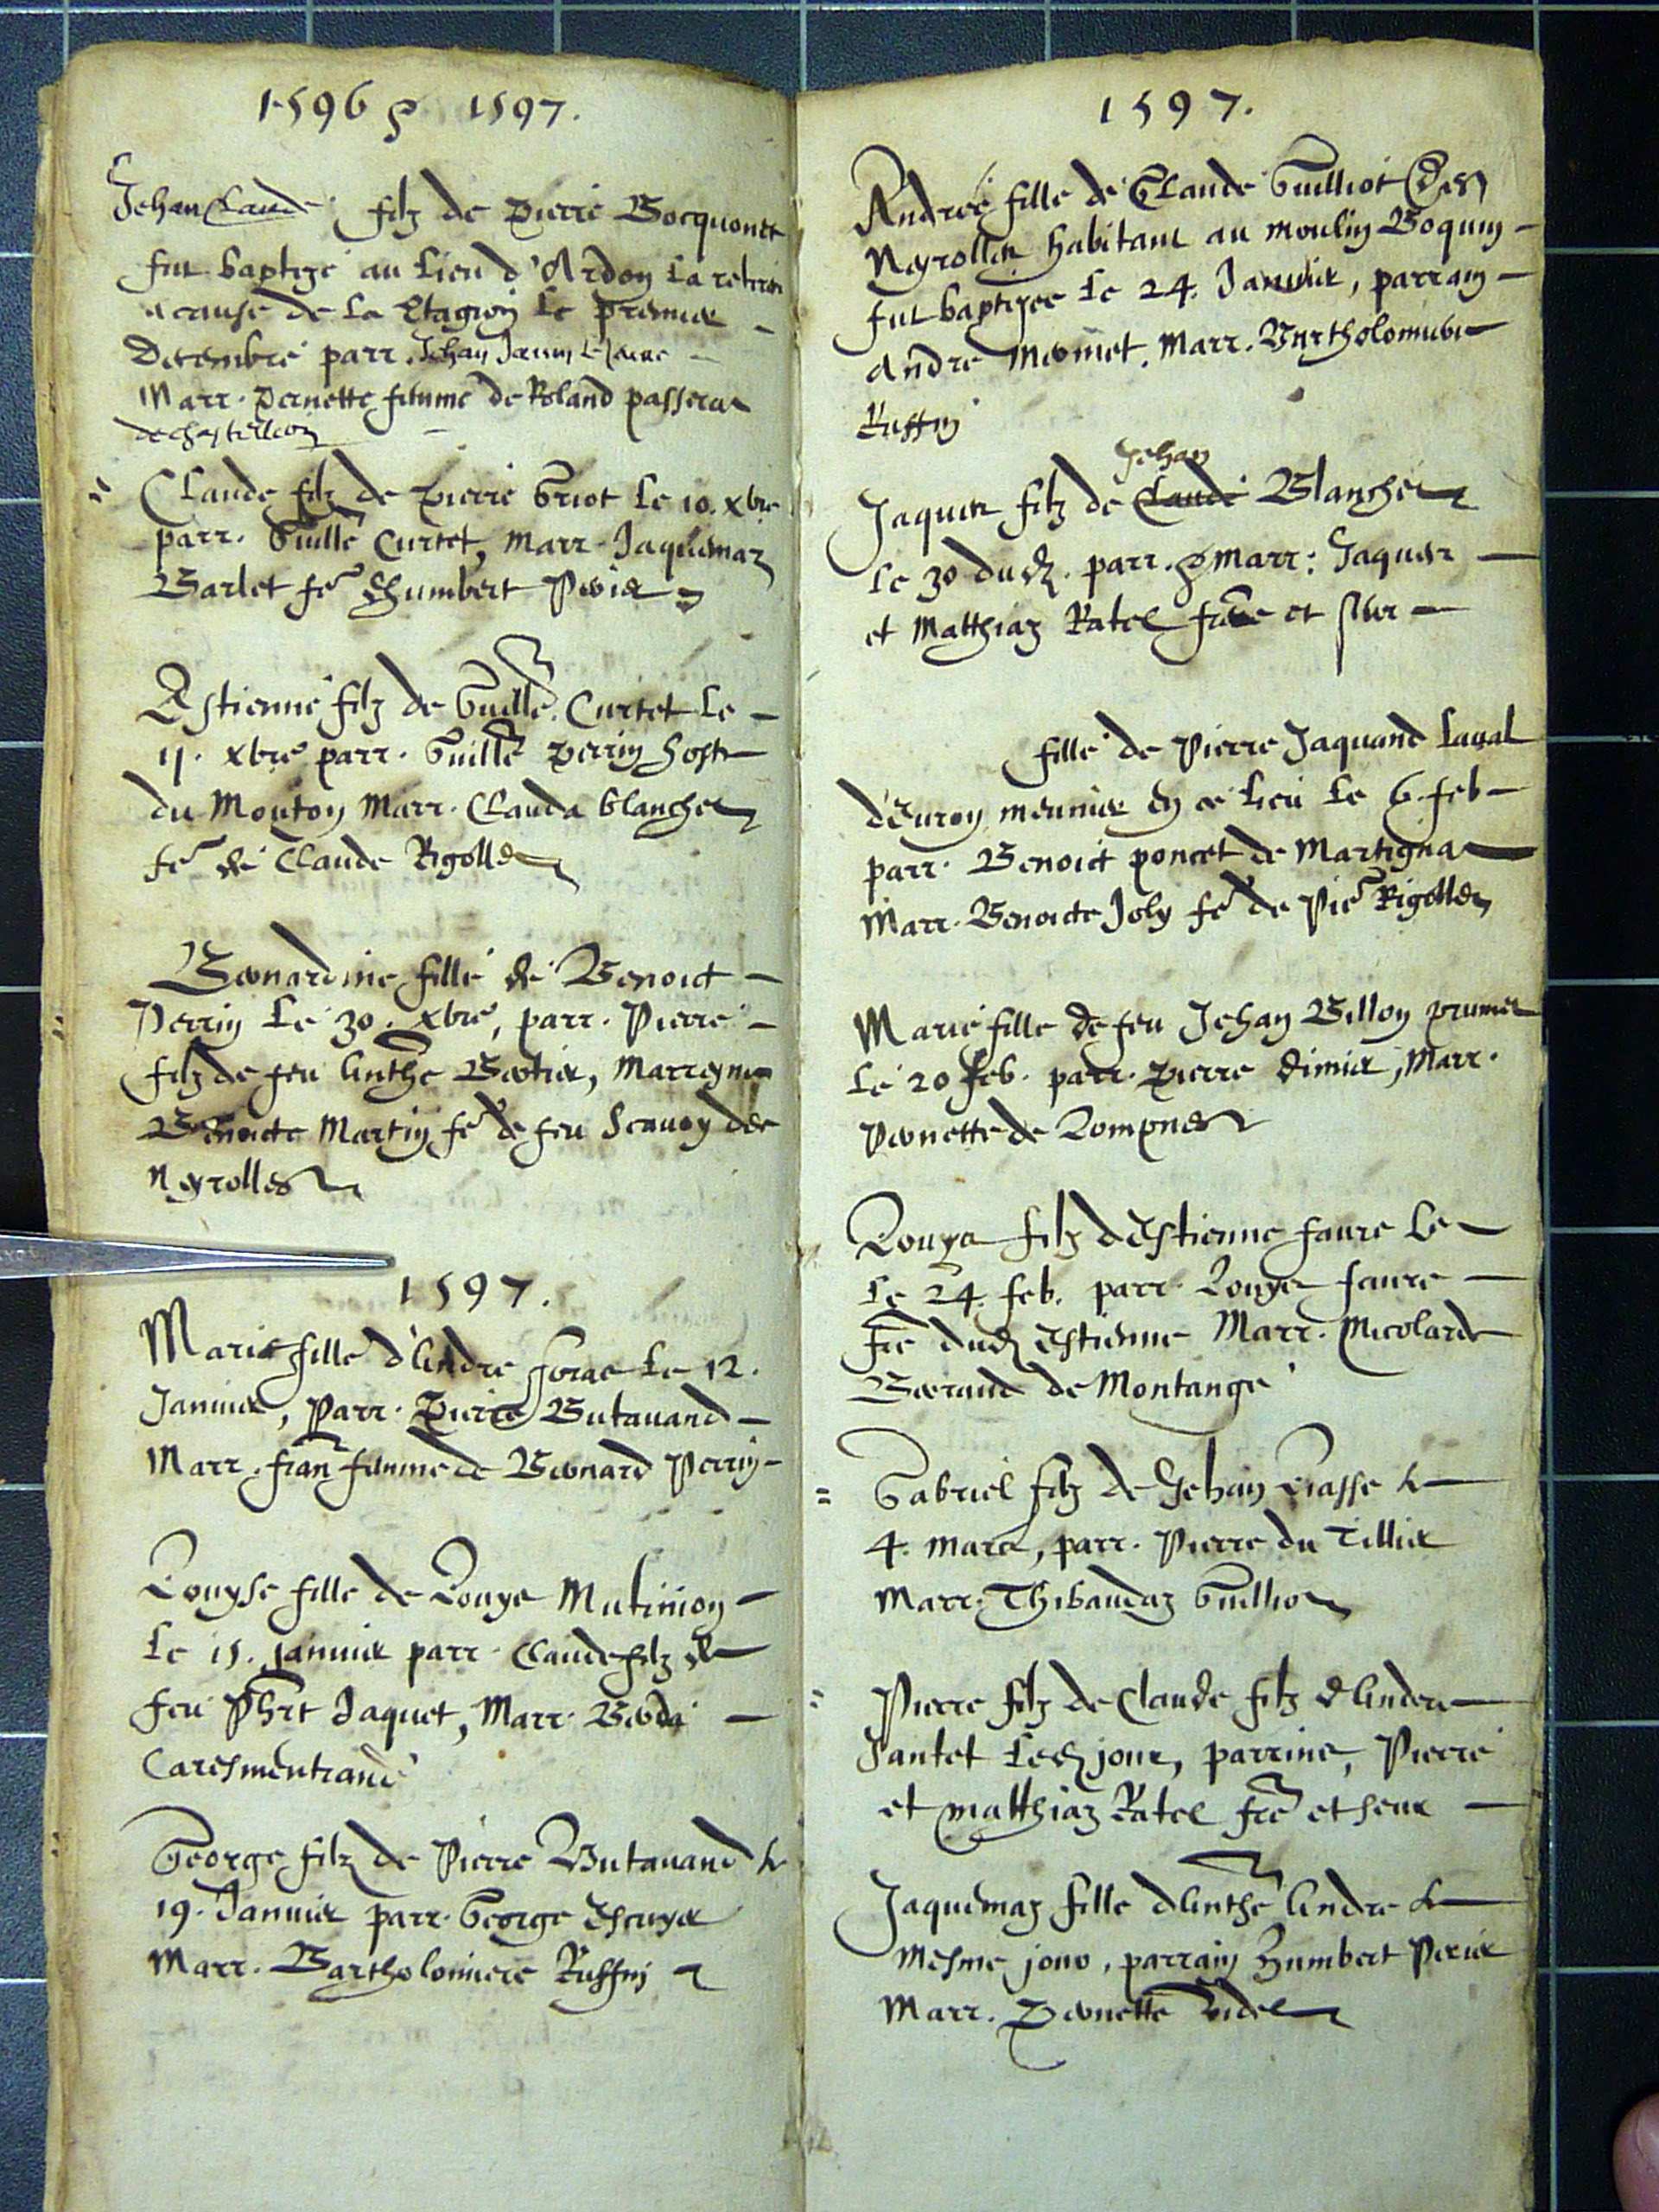 1596 & 1597.
Jehan Claude filz de Pierre Bocquonet
fut baptizé au lieu d'Ardon la retiré
a cause de la Ctagion le premier
Decembre parr. Jehan
Marr. Pernette femme de Roland passerat
de chastillion
Claude filz de Pierre Griot le 10. xbre
parr. Guille Curtet, Marr. Jaquemaz
Barlet fe Humbert Perier
Estienne filz de Guille. Curtet le
11. xbre parr. Guille Perrin hoste
du Mouton Marr. Clauda blanchet
fe de Claude Rigollet
Bernardine fille de Benoict
Perrin le 30. xbre, parr. Pierre
filz de feu Anthe Bertier, Marreyne
Benoicte Martin fe de feu des
Neyrolles
1597.
Marie fille d'Andre le 12.
Januier, Parr. Pierre Butauand
Marr. Fran femme de Bernard Perrin
Louyse fille de Louys Mutinion
Le 15. Januier parr. Claude filz de
feu Phrt Jaquet, Marr. Berda
Caresmentrand
George filz de Pierre Butauand le
19. Januier parr. George Escuyer
Marr. Bartholomiere Ruffin
1597.
Andree fille de Claude Guilliot des
Neyrolles habitant au moulin Boquin
fut baptizee le 24. Januier, parrain
Andre Mermet. Marr. Bartholomiere
Ruffin
Jehan
Jaques filz de Claude Blanchet
le 30 dud. parr. & Marr: Jaques
et Matthiaz Ratel frere et seur
fille de Pierre Jaquand Laual
d'Euron meunier en ce lieu le 6. feb
parr. Benoict poncet de Martigna
Marr. Benoicte Joly fe de Pie Rigollet
Marie fille de feu Jehan Billon
Le 20 feb. parr. Pierre dimier, Marr.
Pernette de Lompnes
Louys filz d'Estienne faure le
Le 24. feb. parr. Louys faure
fre dud Estienne Marr. Nicolarde
Beraud de Montange
Gabriel filz de Jehan Crasse le
4. Mars, parr. Pierre du Tillier
Marr. Thibaudaz Guillion
Pierre filz de Claude filz d'Andre
Santet led jour, parrine, Pierre
et Matthiaz Ratel fre et seur
Jaquemaz fille d'Anthe Andre le
Mesme jour, parrain Humbert Perier
Marr. Pernette Videl